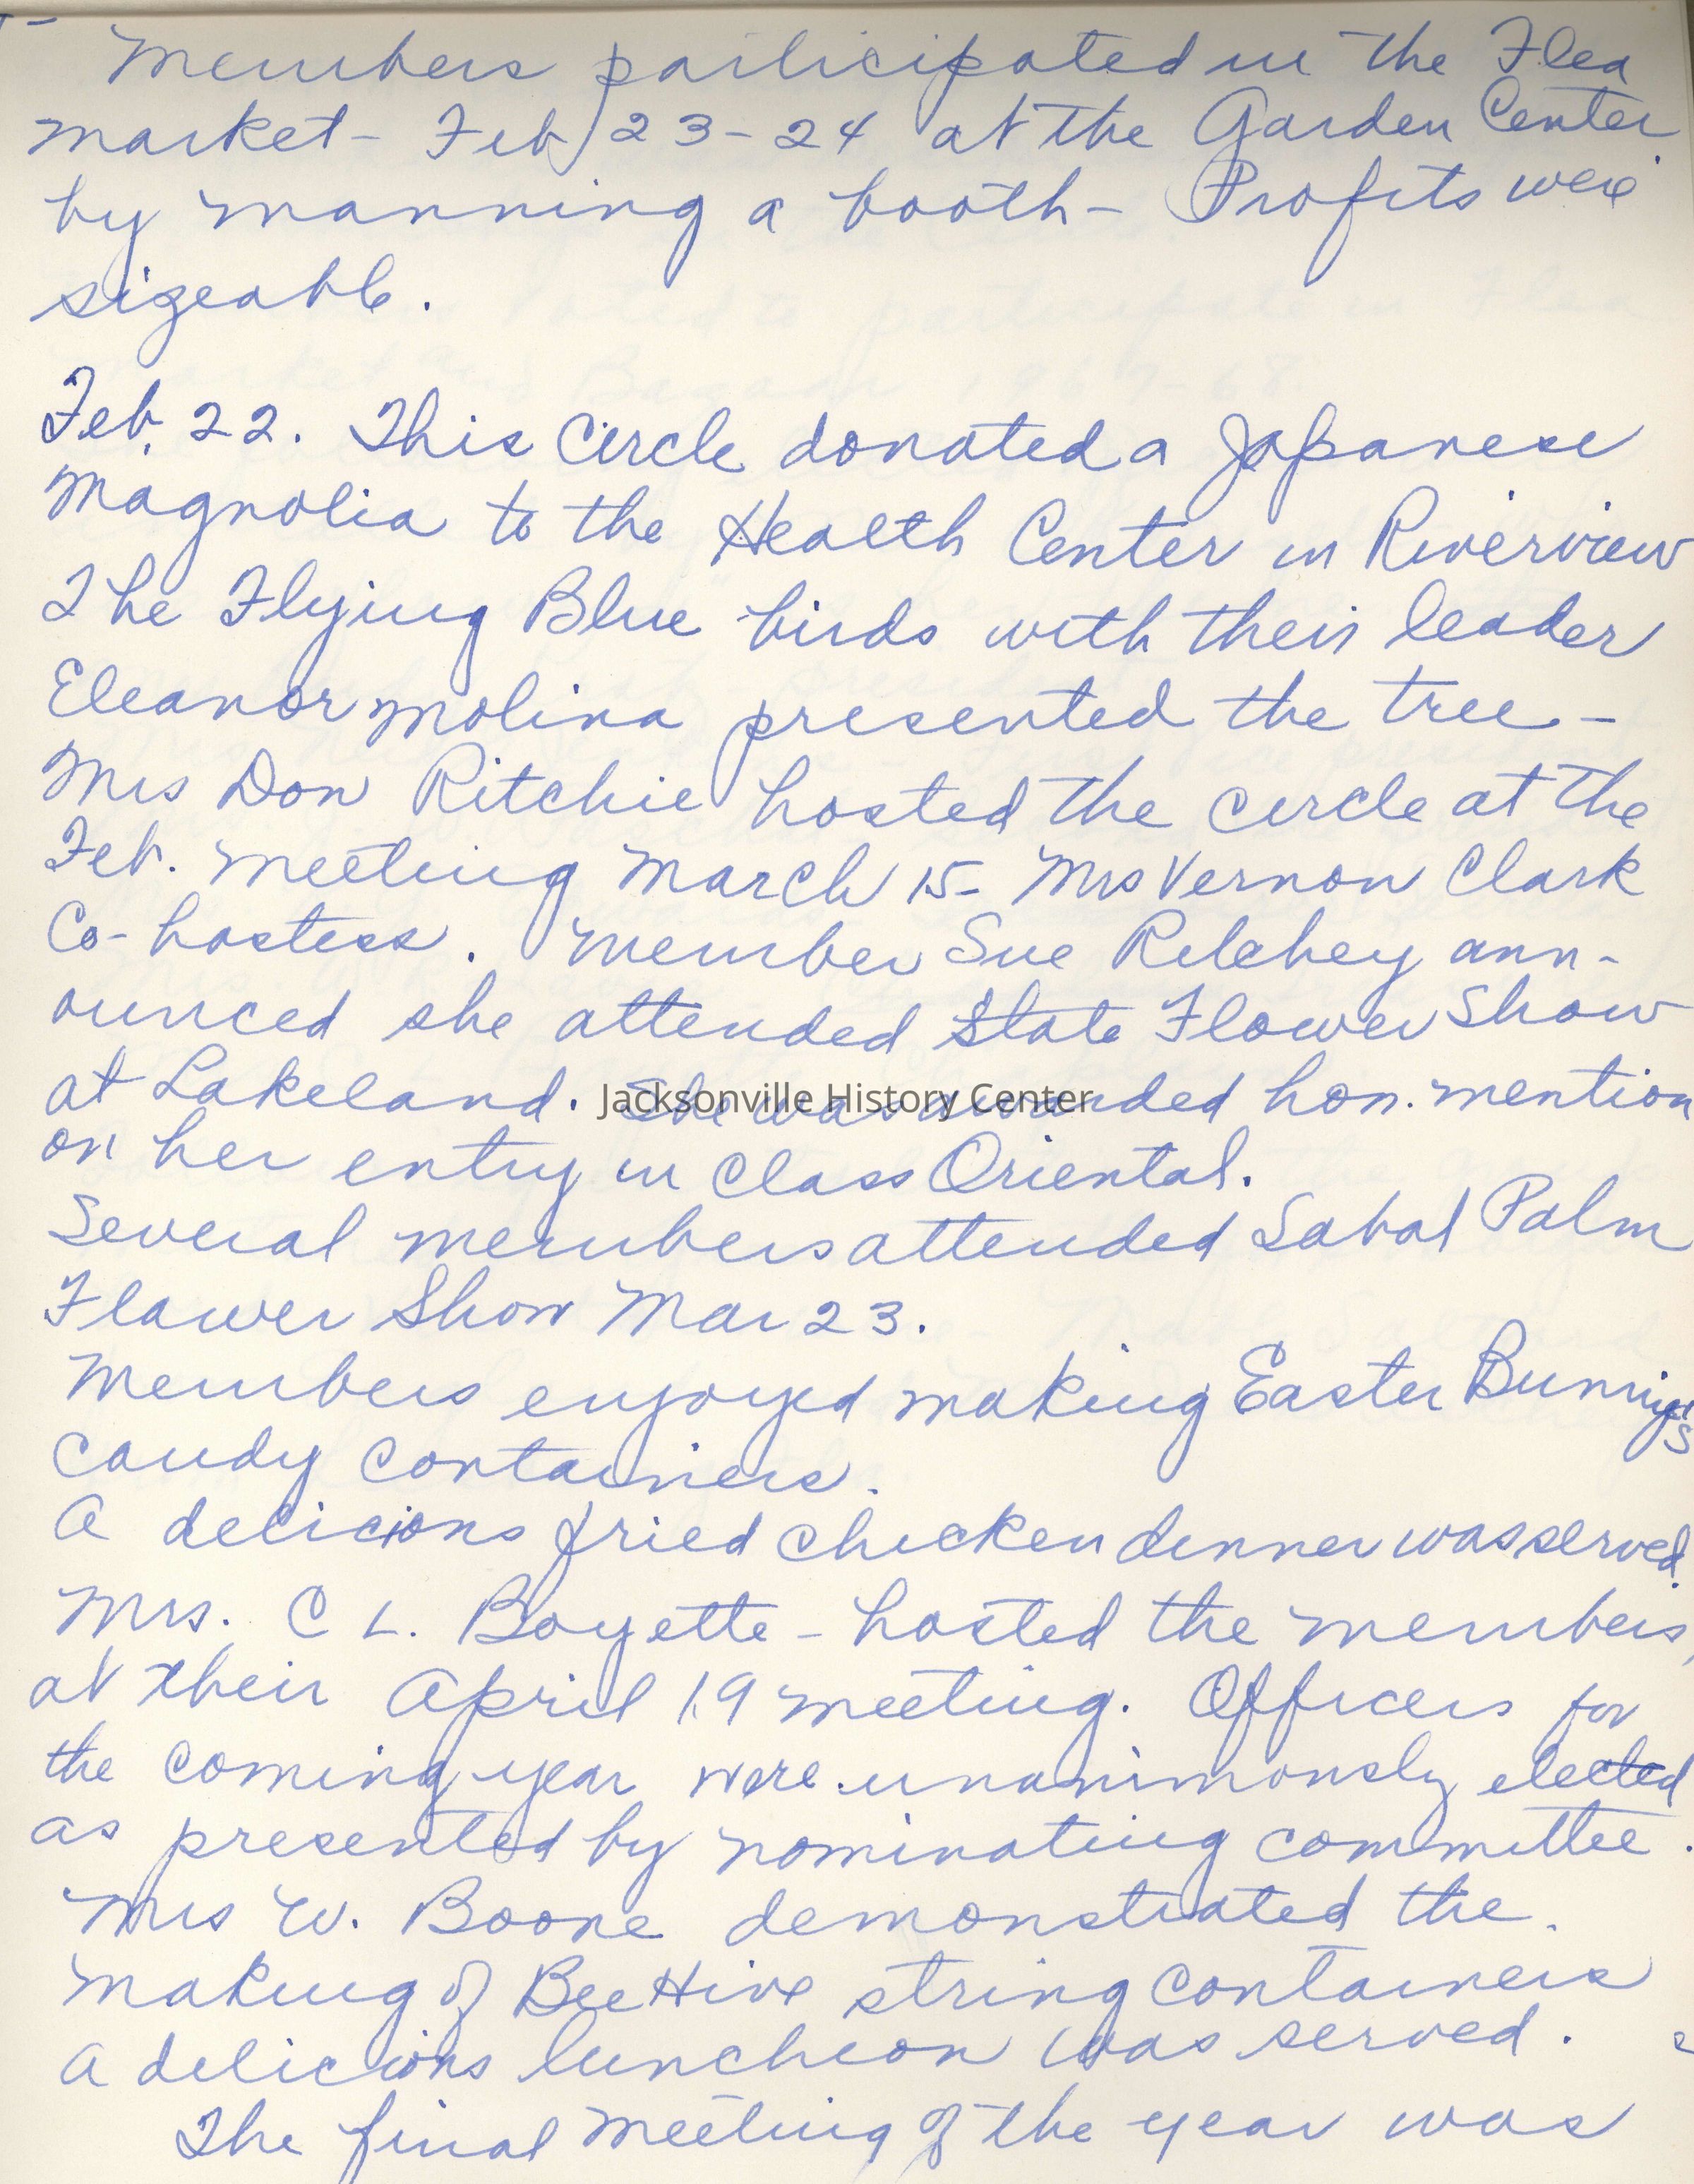 Members participated in the Flea
market - Feb 23-24 at the Garden Center
by manning a booth - Profits were
sizeable.
Feb. 22. This Circle donated a Japanese
Magnolia to the Health Center in Riverview
The Flying Blue birds with their leader
Eleanor Molina presented the tree -
Mrs Don Ritchie hosted the circle at the
Feb. meeting March 15 - Mrs Vernon Clark
Co-hostess. Member Sue Relchey ann-
ounced she attended State Flower Show
at Lakeland. She was awarded hon. mention
Jacksonville History Center
on her entry in Class Oriental.
Several members attended Sabal Palm
Flower Show Mar 23.
Members enjoyed making Easter Bunny's
candy containers.
A delicious fried chicken dinner was served.
Mrs. C L. Boyette - hosted the members,
at their April 19 meeting. Officers for
the coming year were unanimously elected
as presented by nominating committee.
Mrs W. Boone demonstrated the
making of Bee Hive string containers
A delicious luncheon was served.
The final meeting of the year was